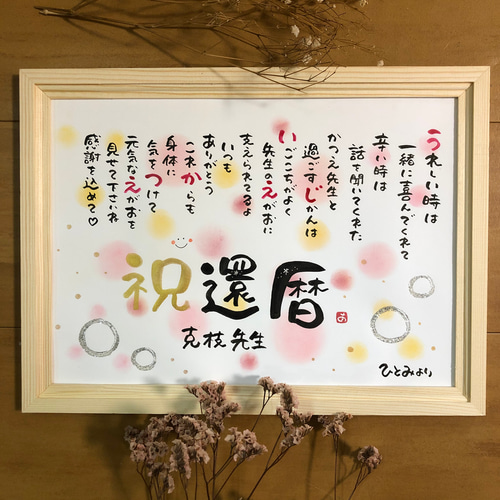 うれしい時は
一緒に喜んでくれて
辛い時は
話を聞いてくれた
かつえ先生と
過ごすじかんは
いごこちがよく
先生のえがおに
支えられてるよ
いつも
ありがとう
これからも
身体に
気をつけて
元気なえがおを
見せて下さいね
感謝を込めて♡
祝還暦
克枝先生
ひとみより